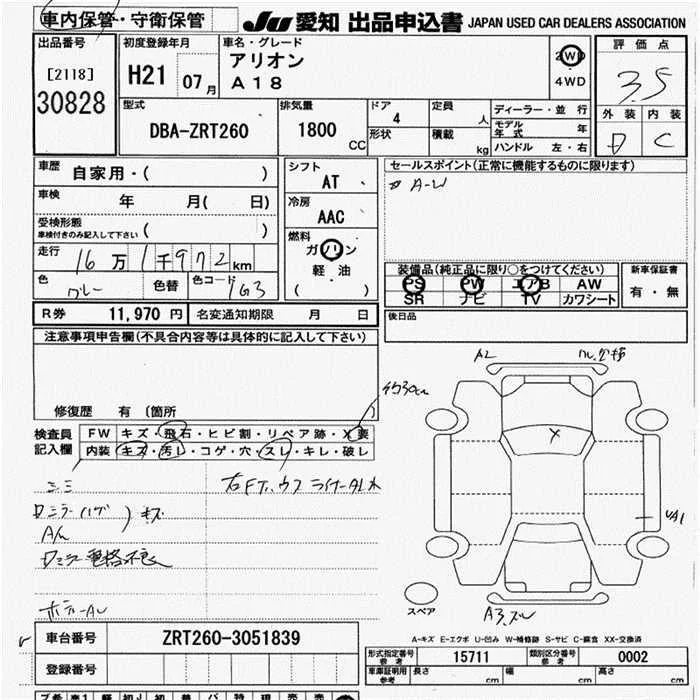 車内保管・守衛保管 JU 愛知 出品申込書 JAPAN USED CAR DEALERS ASSOCIATION
出品番号 初度登録年月 車名・グレード 評価点
[2118] H21 07月 アリオン 2WD 3.5
30828 A18 4WD
外装 内装
型式 排気量 ドア 4 定員 人 ディーラー・並行 D C
DBA-ZRT260 1800 CC 形状 積載 kg モデル年式 年
ハンドル 左・右
車歴 自家用・( ) シフト セールスポイント(正常に機能するものに限ります)
AT A-W
車検 年 月( 日) 冷房
受検形態 AAC
車検付きのみ記入して下さい ( ) 燃料
走行 16万1千972km ガソリン 装備品(純正品に限り○をつけてください) 新車保証書
軽油 PS PW エアB AW 有・無
色 グレー 色替 色コード 1G3 ( ) SR ナビ TV カワシート
R券 11,970円 名変通知期限 月 日 後日品
注意事項申告欄(不具合内容等は具体的に記入して下さい)
修復歴 有 (箇所 )
検査員 FW キズ・飛石・ヒビ割・リペア跡・X要 約30cm
記入欄 内装 キズ・汚レ・コゲ・穴・スレ・キレ・破レ
A2
X
キズ
Dミラー格納不良
スペア
A-キズ E-エクボ U-凹み W-補修跡 S-サビ C-腐食 XX-交換済
車台番号 ZRT260-3051839
型式指定番号 参考 15711 類別区分番号 参考 0002
登録番号 車庫証明用 参考 長さ cm 幅 cm 高さ cm